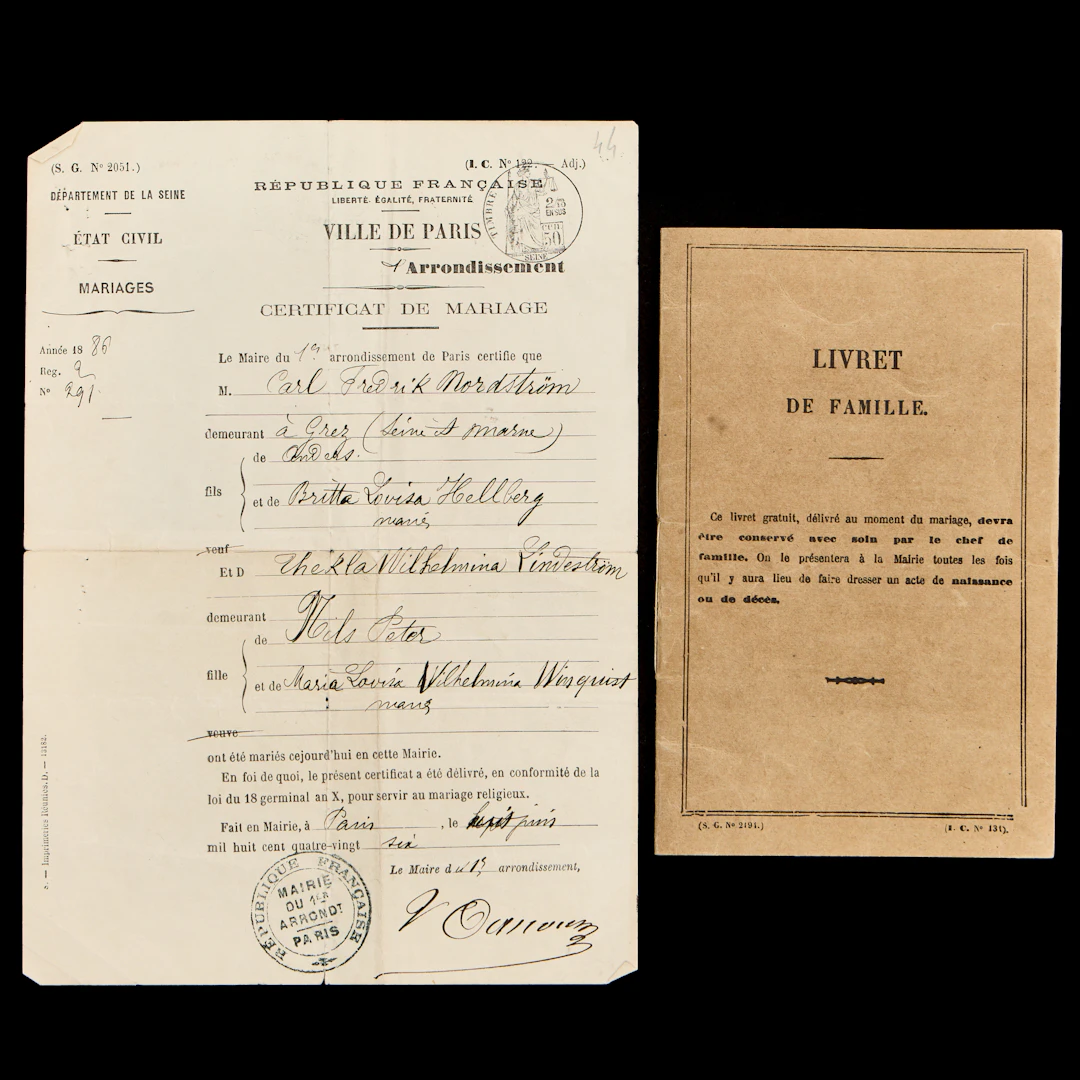 44.
(S. G. Nº 2051.)
(I. C. Nº 122. — Adj.)
DÉPARTEMENT DE LA SEINE
ÉTAT CIVIL
MARIAGES
Année 1886
Reg. 2
Nº 291
RÉPUBLIQUE FRANÇAISE
LIBERTÉ, ÉGALITÉ, FRATERNITÉ
VILLE DE PARIS
Arrondissement
CERTIFICAT DE MARIAGE
TIMBRE
2/10
EN SUS
50
SEINE
Le Maire du 1er arrondissement de Paris certifie que
M. Carl Fredrik Nordström
demeurant à Grez (Seine et Marne)
de Anders.
fils
et de Britta Lovisa Hellberg
mariés
veuf
Et D Thékla Wilhelmina Lindeström
demeurant
de Nils Peter
fille
et de Maria Lovisa Wilhelmina Winquist
mariés
veuve
ont été mariés cejourd'hui en cette Mairie.
En foi de quoi, le présent certificat a été délivré, en conformité de la
loi du 18 germinal an X, pour servir au mariage religieux.
Fait en Mairie, à Paris, le juin
mil huit cent quatre-vingt six
Le Maire du 1er arrondissement,
RÉPUBLIQUE FRANÇAISE
MAIRIE
DU 1ER
ARRONDT
PARIS
S. — Imprimeries Réunies. D. — 13182.
LIVRET
DE FAMILLE.
Ce livret gratuit, délivré au moment du mariage, devra
être conservé avec soin par le chef de
famille. On le présentera à la Mairie toutes les fois
qu'il y aura lieu de faire dresser un acte de naissance
ou de décès.
(S. G. Nº 2494.)
(I. C. Nº 131).